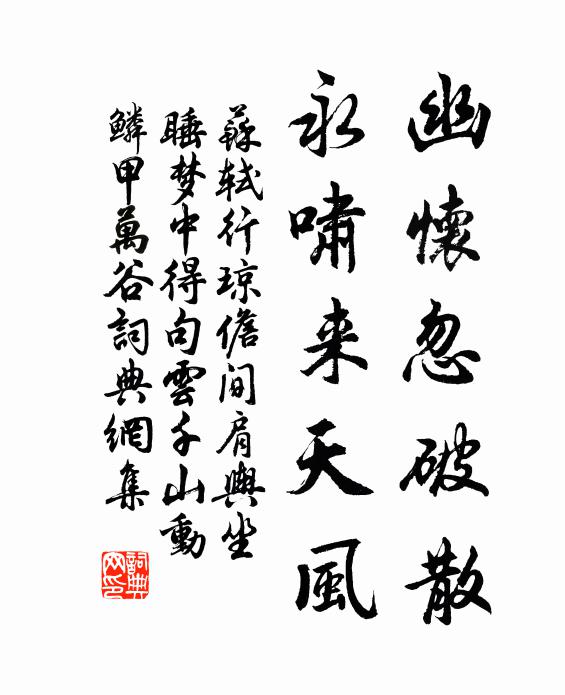 幽懷忽破散
永嘯来天風
蘇軾行琼儋间肩輿坐
睡梦中得句雲千山動
鱗甲萬谷詞典網集
詞典
网印